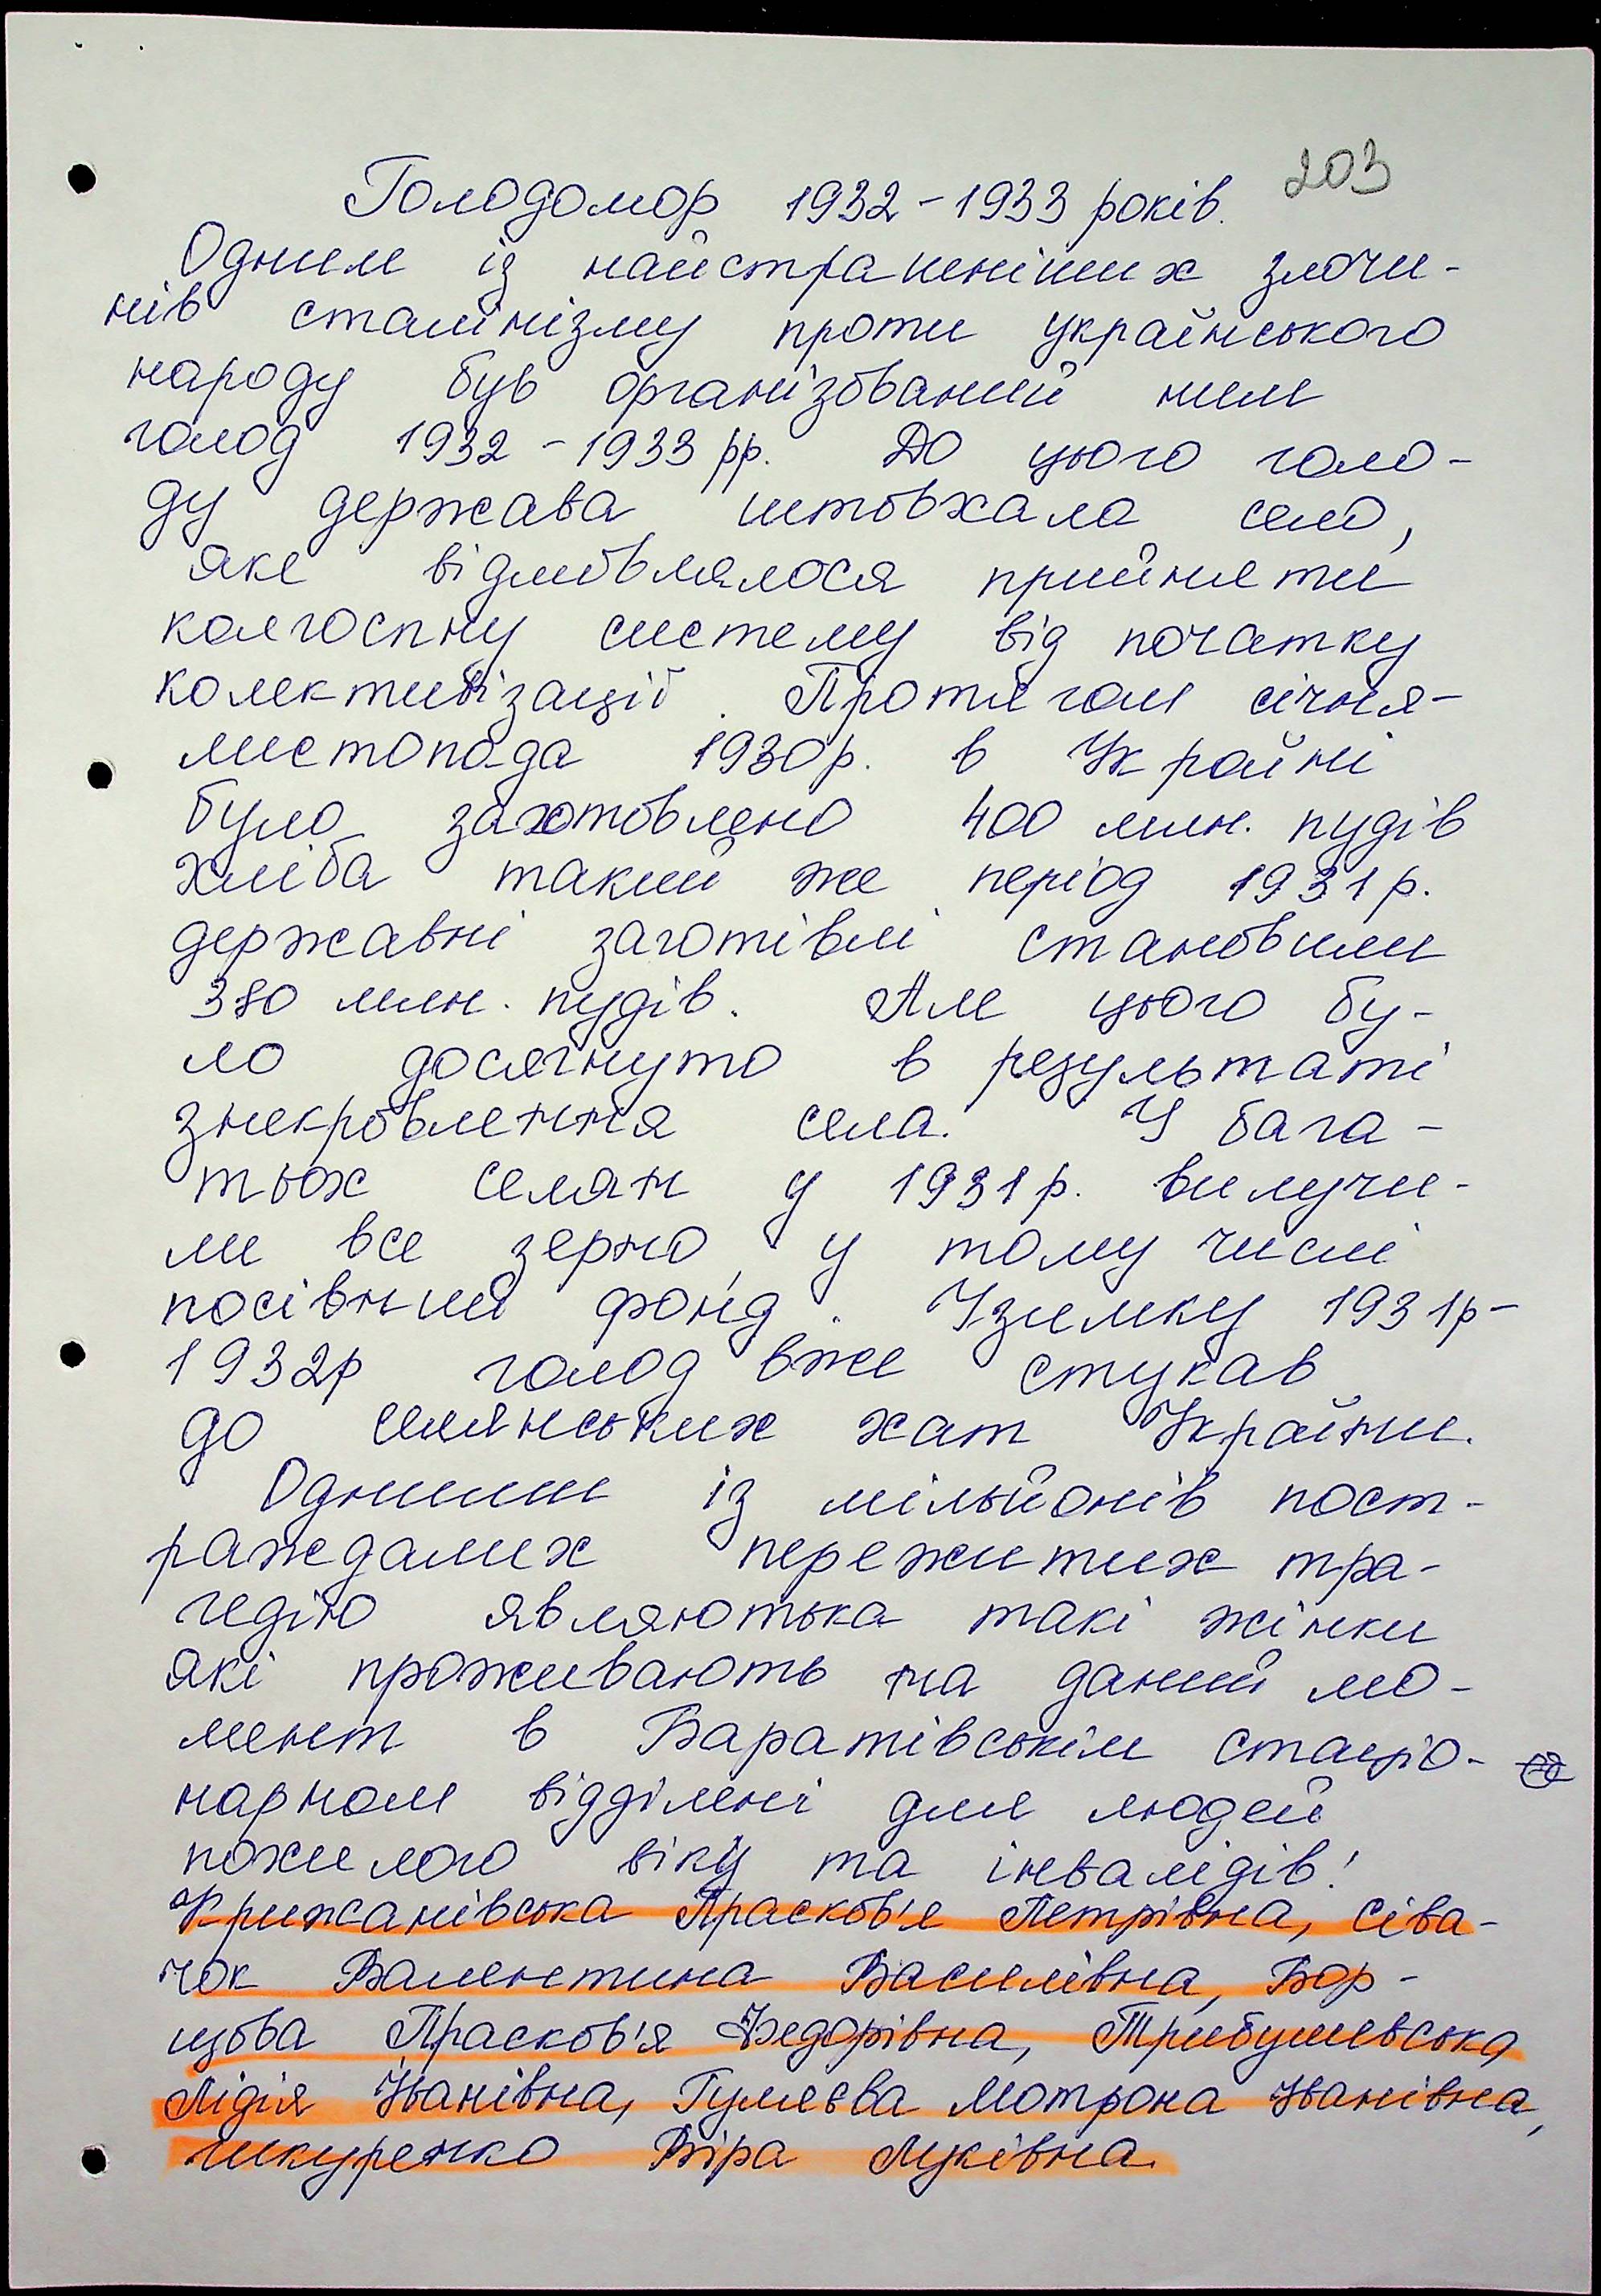 203
Голодомор 1932-1933 років.
Одним із найстрашніших злочи-
нів сталінізму проти українського
народу був організований ним
голод 1932-1933 рр. До цього голо-
ду держава штовхала село,
яке відмовлялося прийняти
колгоспну систему від початку
колективізації. Протягом січня-
листопада 1930р. в Україні
було заготовлено 400 млн. пудів
хліба такий же період 1931р.
державні заготівлі становили
380 млн. пудів. Але цього бу-
ло досягнуто в результаті
знекровлення села. У бага-
тьох селян у 1931р. вилучи-
ли все зерно, у тому числі
посівний фонд. Узимку 1931р-
1932р голод вже стукав
до селянських хат України.
Одними із мільйонів пост-
раждалих пережитих тра-
гедію являютька такі жінки
які проживають на даний мо-
мент в Баратівськім стаціо-
нарном відділені для людей
похилого віку та інвалідів!
Крижанівська Прасков'я Петрівна, Сіва-
чок Валентина Василівна, Бор-
щова Прасков'я Федорівна, Трибушевська
Лідія Іванівна, Гуляєва Мотрона Іванівна,
Шкуренко Віра Луківна.